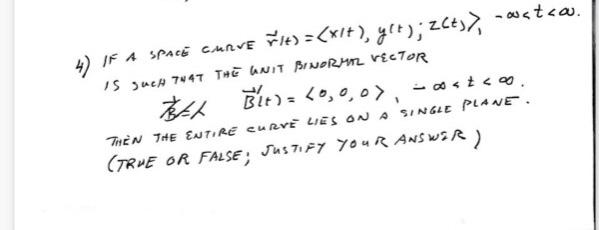 4) IF A SPACE CURVE r⃗(t) = <x(t), y(t); z(t)>, -∞<t<∞.
IS SUCH THAT THE UNIT BINORMAL VECTOR
B⃗'(t) = <0,0,0>, -∞<t<∞.
THEN THE ENTIRE CURVE LIES ON A SINGLE PLANE.
(TRUE OR FALSE; JUSTIFY YOUR ANSWER)